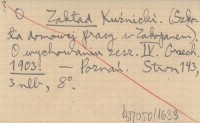 ? O Zakład Kuźnicki. (Szko-
ła domowej pracy w Zakopanem).
O wychowaniu zesz. IV. Czech.
1903. — Poznań. Stron 143,
3 nlb, 8°.